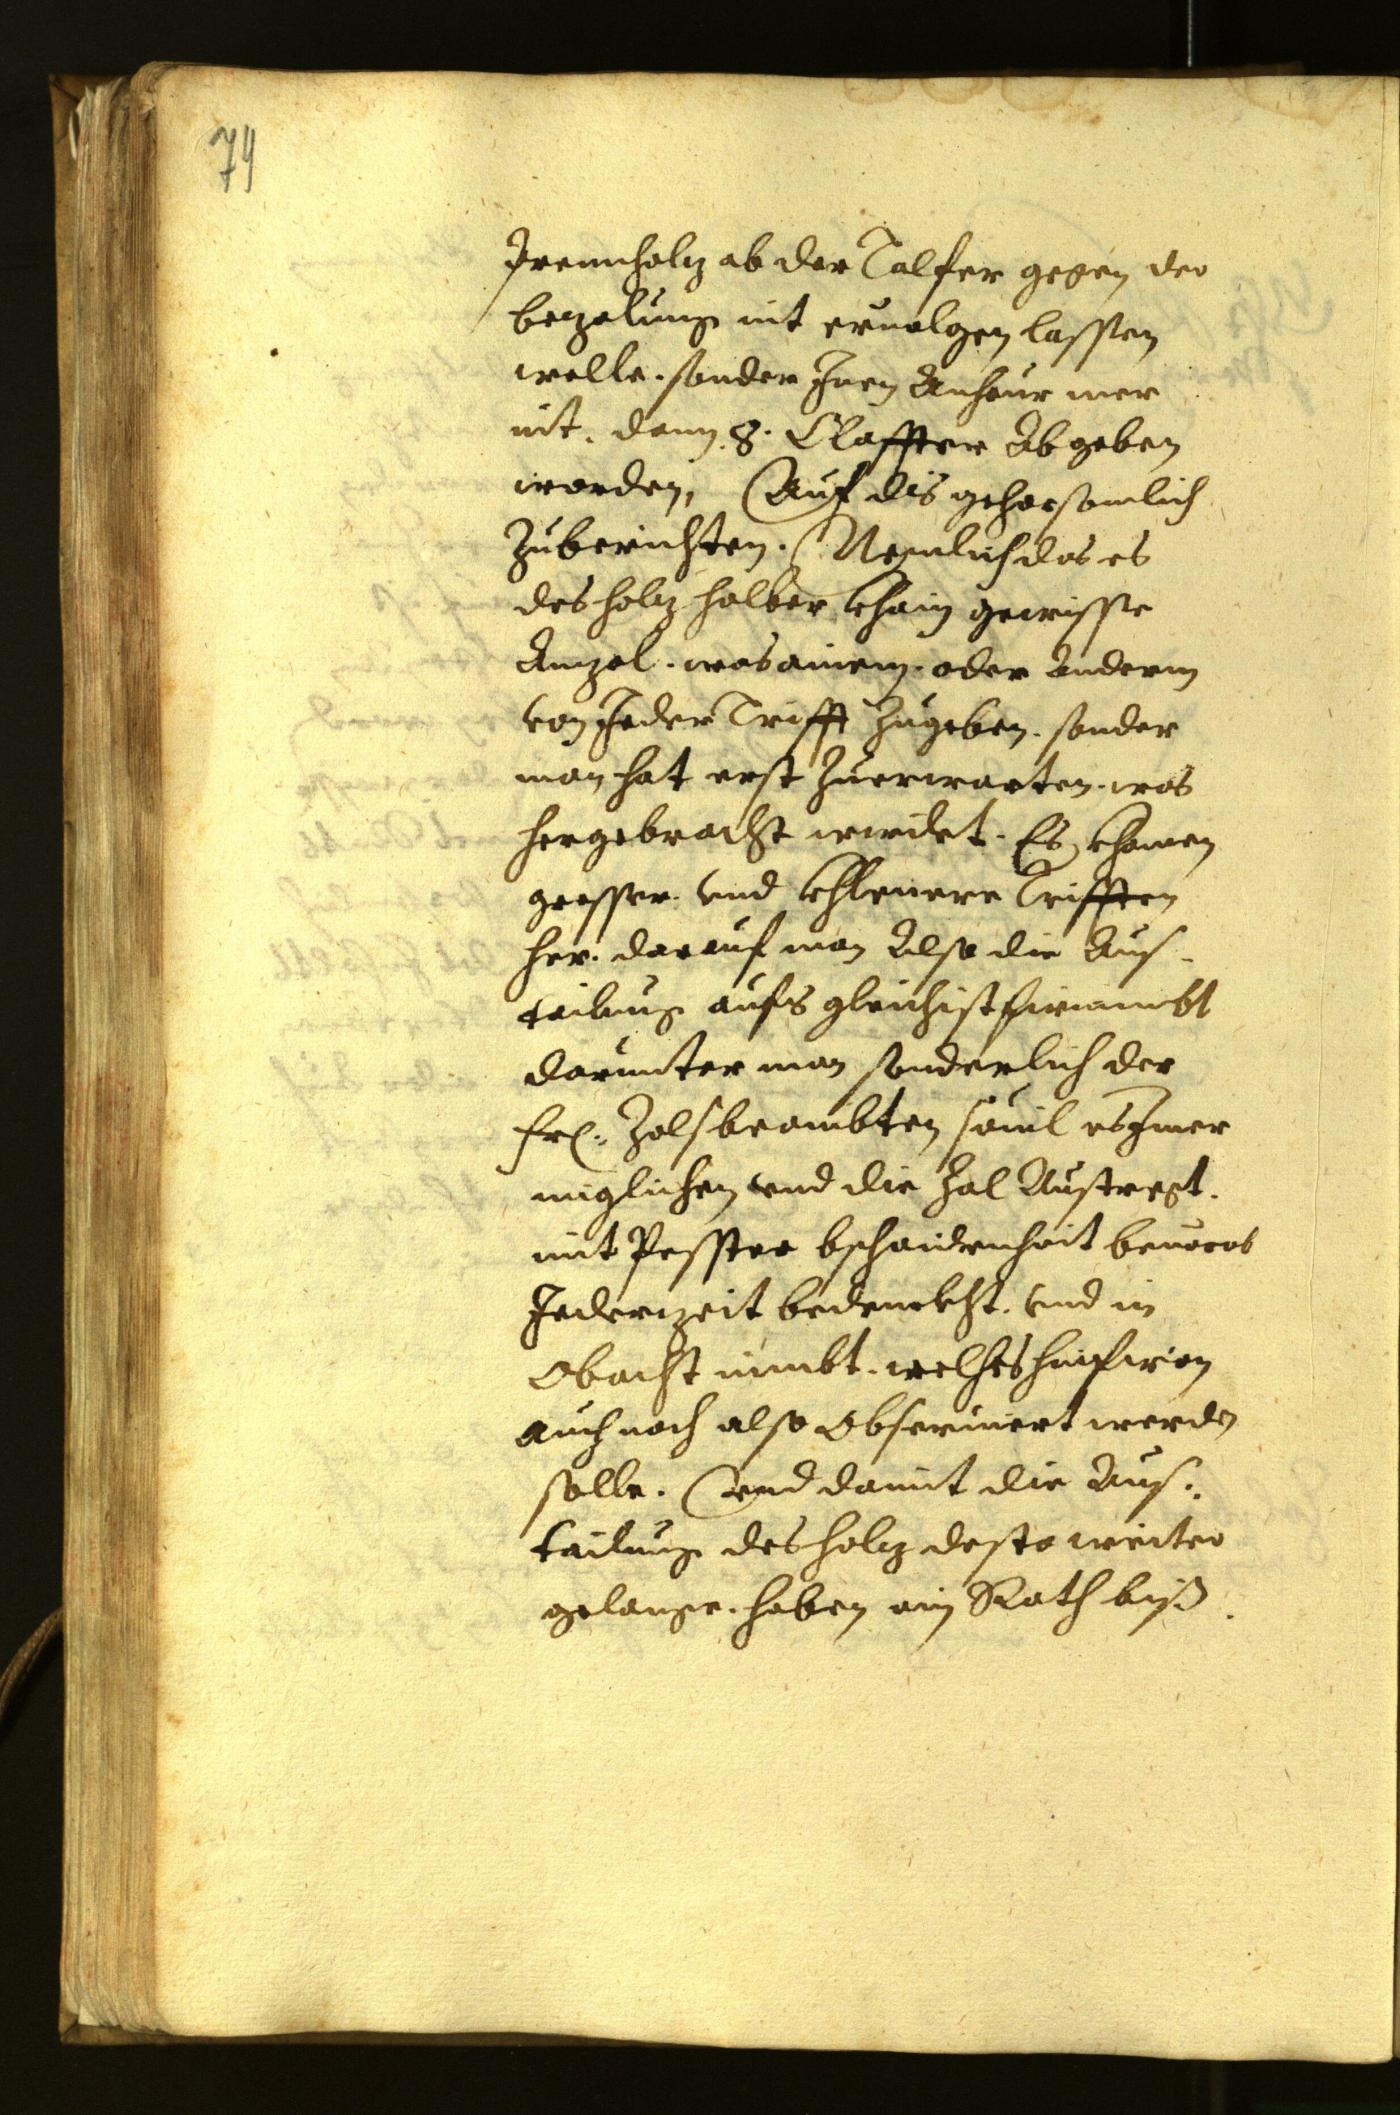 74
Prennholz ab der Talfer gegen der
bezalung nit eruolgen lassen
welle. sonder Inen Anheur mer
nit. dann 8. Claffter Abgeben
worden, Auf dis gehorsamlich
Zuberichten. Nemlich das es
des holz halber khain gewisse
Anzal. was ainem. oder Anderm
von Jeder Trifft Zugeben. sonder
man hat erst Zuerwarten. was
hergebracht wirdet. Es khomen
grosser. vnd khlenere Trifften
her. darauf man Also die Aus-
tailung aufs gleichist firnimbt
darunter man sonderlich der
frl: Zolsbeambten souil es Imer
miglichen vnd die Zal Austregt.
mit Pesster bschaidenheit beuoras
Jederzeit bedenckht. vnd in
Obacht nimbt. welches hinfiron
auch noch also Obseruiert werden
solle. Vnd damit die Aus:
tailung des holz desto weiter
gelange. haben ain Rath biß